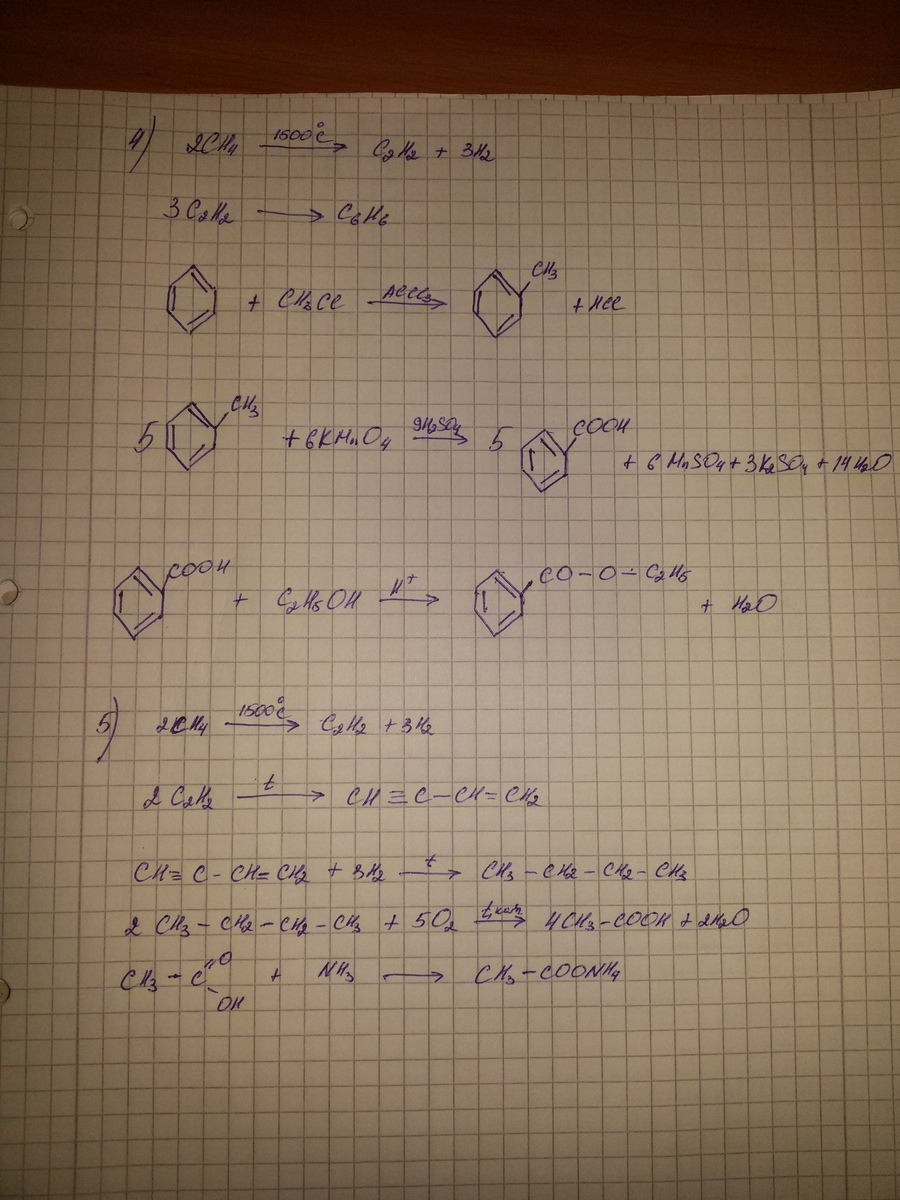 4) 2CH₄ 1500°C → C₂H₂ + 3H₂
3C₂H₂ → C₆H₆
+ CH₃Cl AlCl₃ → CH₃ + HCl
5 CH₃ + 6KMnO₄ 9H₂SO₄ → 5 COOH + 6MnSO₄ + 3K₂SO₄ + 14H₂O
COOH + C₂H₅OH H⁺ → CO-O-C₂H₅ + H₂O
5) 2CH₄ 1500°C → C₂H₂ + 3H₂
2C₂H₂ t → CH≡C-CH=CH₂
CH≡C-CH=CH₂ + 3H₂ t → CH₃-CH₂-CH₂-CH₃
2CH₃-CH₂-CH₂-CH₃ + 5O₂ t, кат → 4CH₃-COOH + 2H₂O
CH₃-C=O OH + NH₃ → CH₃-COONH₄